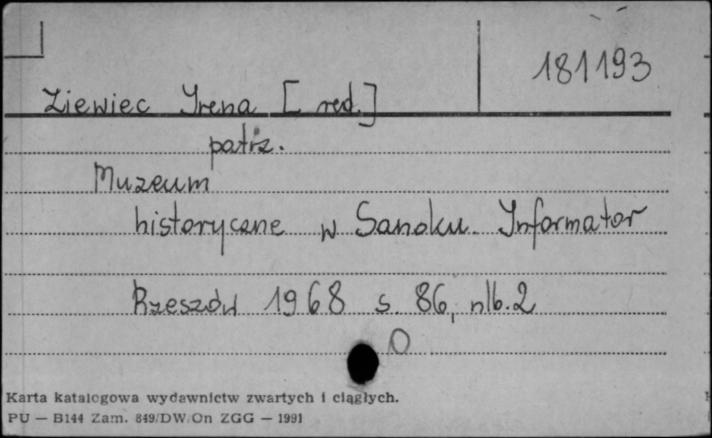 181193
Ziewiec Irena [red.]
patrz.
Muzeum
historyczne w Sanoku. Informator
Rzeszów 1968 s. 86, nlb. 2
O
Karta katalogowa wydawnictw zwartych i ciągłych.
PU — B144 Zam. 849/DW/On ZGG — 1991